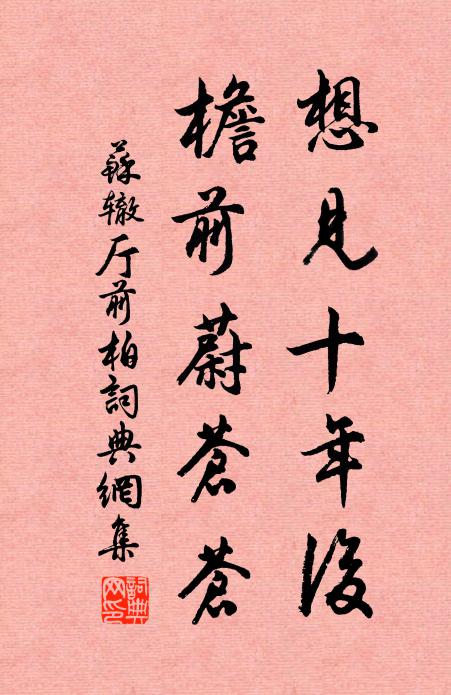 想見十年後
檐前蔚蒼蒼
蘇辙厅前柏詞典網集
詞典網印